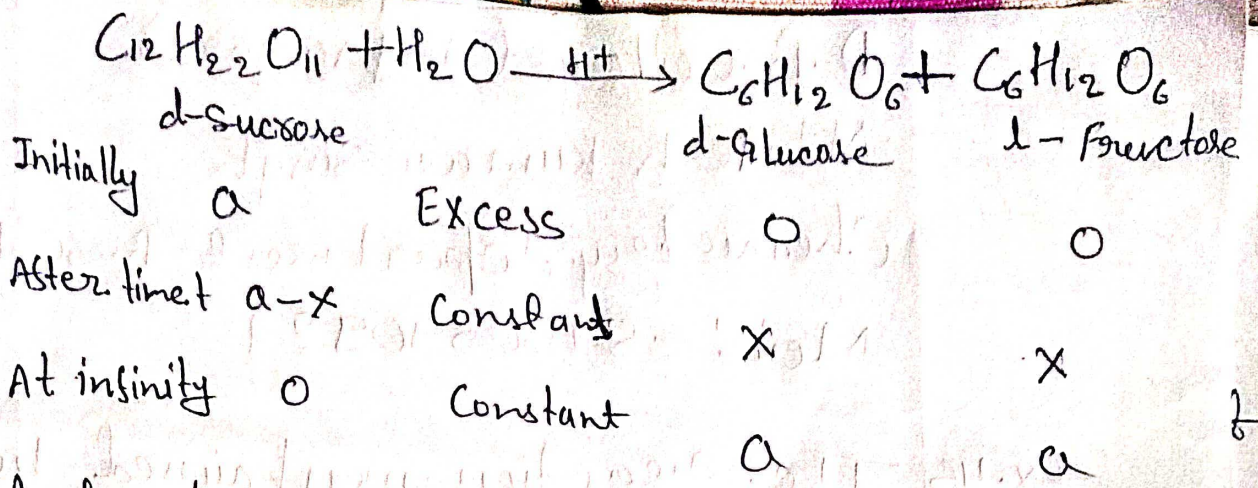 C12 H22 O11 + H2O —H+→ C6H12 O6 + C6H12 O6
d-Sucrose d-Glucase l-Fructose
Initially a Excess 0 0
After time t a-x Constant x x
At infinity 0 Constant a a